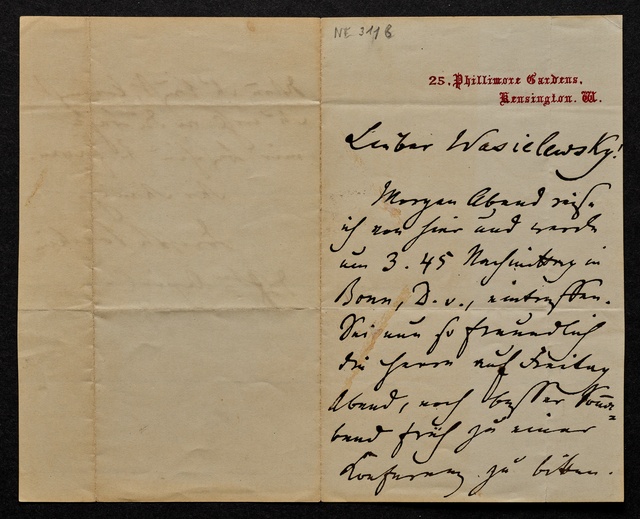 NE 311 b
25, Phillimore Gardens,
Kensington. W.
Lieber Wasielewsky!
Morgen Abend reise
ich von hier und werde
um 3.45 Nachmittag in
Bonn, D. v., eintreffen.
Sei nun so freundlich
die Herrn auf Freitag
Abend, noch besser Sonna=
bend früh zu einer
Konferenz zu bitten.